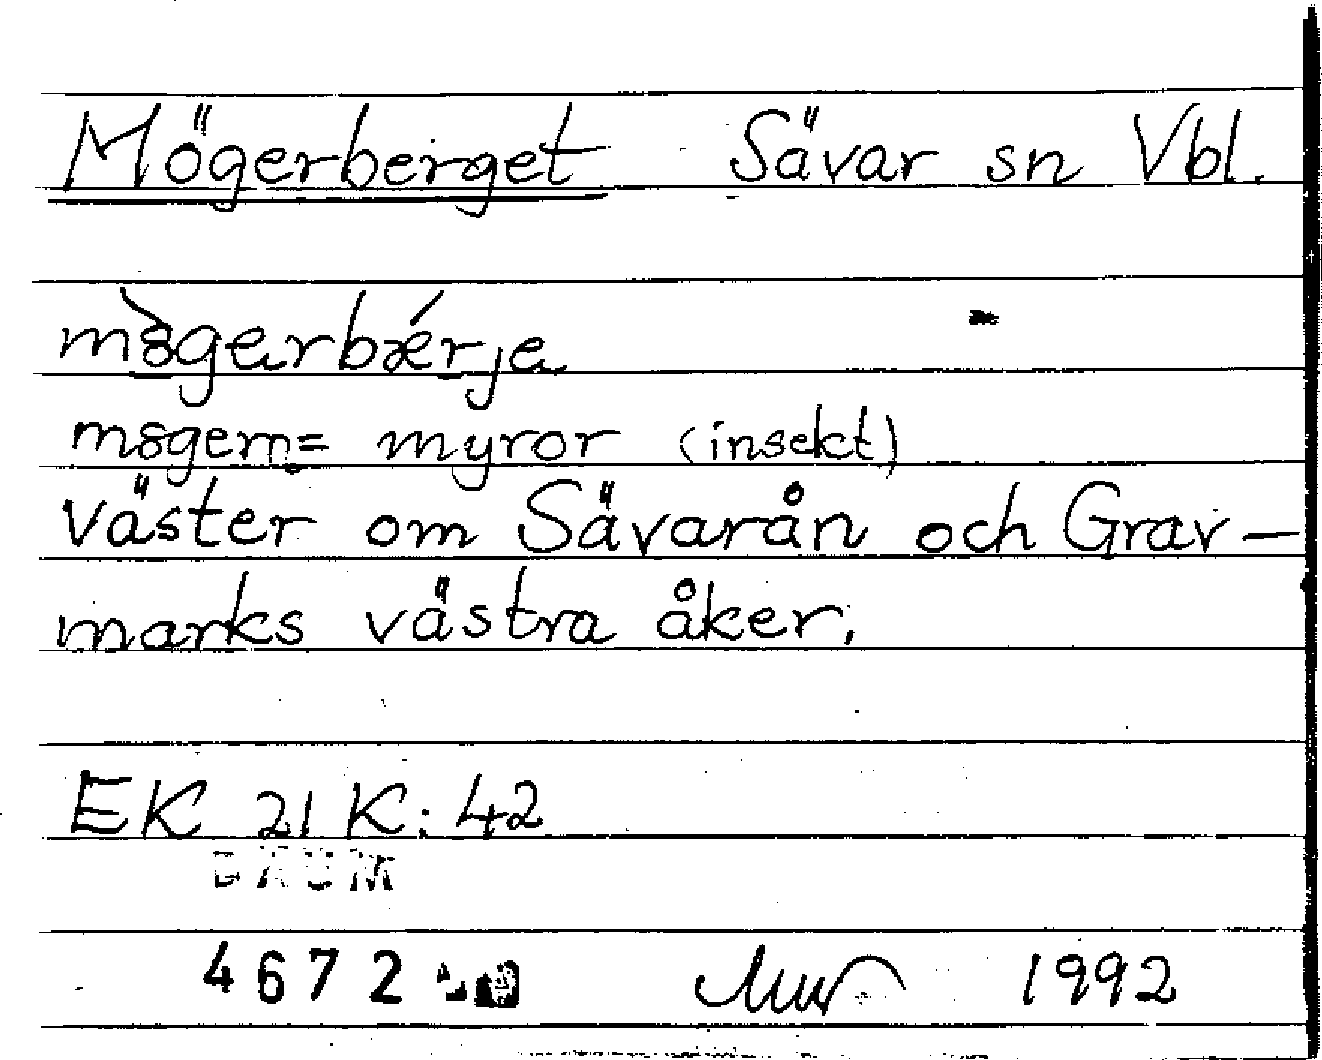 Mögerberget Sävar sn Vbl.
mò̈gerbǽrje
mögern= myror (insekt)
Väster om Sävarån och Grav-
marks västra åker.
EK 21 K: 42
DAUM
4672 1992